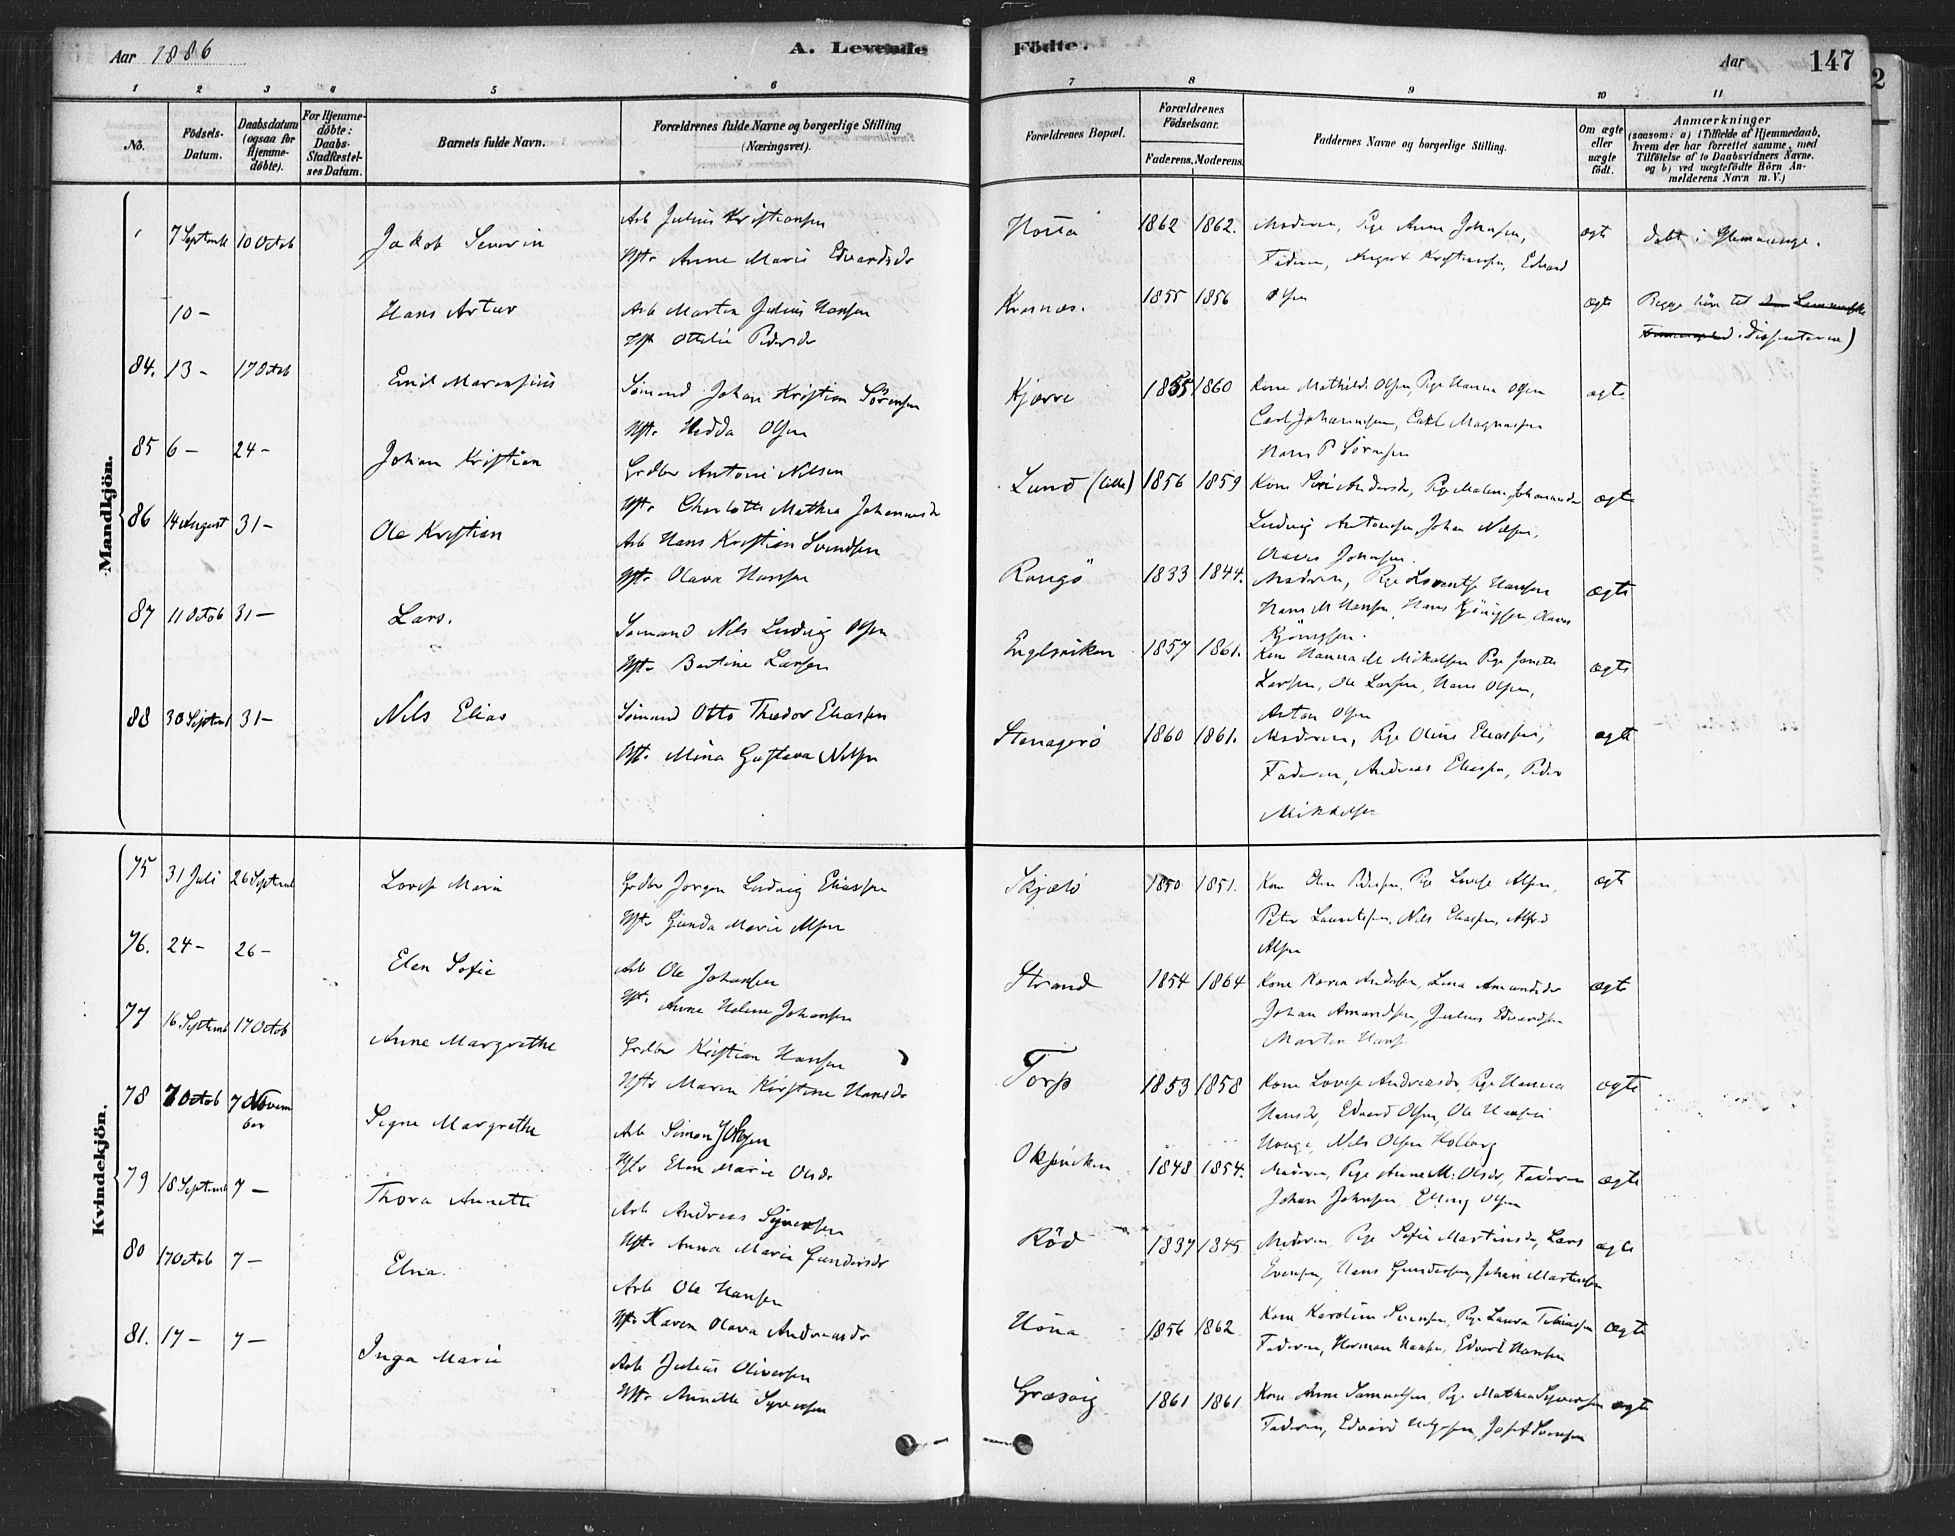 Aar 1886
A. Levende
Födte.
Aar
147
1 2 3 4 5 6 7 8 9 10 11
No.
Födsels-Datum.
Daabsdatum (ogsaa for Hjemme-döbte).
For Hjemme-döbte: Daabs-Stadfæstel-ses Datum.
Barnets fulde Navn.
Forældrenes fulde Navne og borgerlige Stilling (Næringsvei).
Forældrenes Bopæl.
Forældrenes Födselsaar.
Faderens. Moderens.
Faddernes Navne og borgerlige Stilling.
Om ægte eller uægte födt.
Anmærkninger
(saasom: a) i Tilfælde af Hjemmedaab, hvem der har forrettet samme, med Tilföielse af to Daabsvidners Navne. og b) ved uægtefödte Börn An-melderens Navn m. V.)
Mandkjön.
7 Septemb 10 Octob Jakob Severin
Arb Julius Kristiansen
Hst. Anne Marie Edvardsdr
1862 1862. Moderen, Pige Anna Johnsen,
Faderen, August Kristiansen, Edvard
Olsen
ægte
döbt i Glemminge.
10 – Hans Artur
Arb Martin Julius Hansen
Hst Ottilie Pedersdr
1855 1856
ægte
Begge höre til
Dissenterne)
84. 13 – 17 Octob Emil Marensius
Sömand Johan Kristian Sörensen
Hst. Hedda Olsen
Kjærre 1855 1860 Kone Mathilde Olsen, Pige Hanna Olsen
Carl Johannesen, Carl Magnussen
Hans P Sörensen
ægte
85 6 – 24 – Johan Kristian
Grdbr Antoni Nilsen
Hst. Charlotte Mathea Johannesdr
Lund (lille) 1856 1859
Ludvig Antonsen, Johan Nilsen,
Olaves Johnsen.
ægte
86 14 August 31 – Ole Kristian
Arb Hans Kristian Svendsen
Hst. Olava Hansen
Rangö 1833 1844. Moderen, Pige Lorentse Hansen
Hans M Hansen, Hans Kjönigsen Olaves
Kjönigsen.
ægte
87 11 Octob 31 – Lars.
Sömand Nils Ludvig Olsen
Hst. Bertine Larsen
Engelsviken 1857 1861. Kone Hanna M Mikalsen Pige Janette
Larsen, Ole Larsen, Hans Olsen,
Anton Olsen
ægte
88 30 Septemb 31 – Nils Elias
Sömand Otto Theodor Eliassen
Hst. Mina Gustava Nilsen
Stenageró 1860 1861. Moderen, Pige Oline Eliassen,
Faderen, Andreas Eliassen, Peder
Mikkelsen
ægte
Kvindekjön.
75 31 Juli 26 Septemb Lovise Marie
Grdbr Jörgen Ludvig Eliassen
Hst. Gunda Marie Alsen
Skjælö 1850 1851. Kone Olea Pedersen, Pige Lovise Alsen,
Peter Lauritsen, Nils Eliassen, Alfred
Alsen
ægte
76. 24 – 26 – Elen Sofie
Arb Ole Johansen
Hst. Anne Helene Johansen
Strand 1854 1864 Kone Karen Andersen, Lina Amundsdr
Johan Amundsen, Julius Edvardsen
Martin Hans
ægte
77 16 Septemb 17 Octob Anne Margrethe
Grdbr Kristian Hansen
Hst. Maren Kirstine Hansdr
Torp 1853 1858 Kone Lovise Andreasdr, Pige Hanna
Hansdr, Edvard Olsen, Ole Hansen
Hauge, Nils Olsen Holberg
ægte
78 7 Octob 7 November Signe Margrethe
Arb Simon J Olsen
Hst Elen Marie Olsdr
1848 1854. Moderen, Pige Anne M. Olsdr, Faderen
Johan Johnsen Elling Olsen
ægte
79 18 Septemb 7 – Thora Annette
Arb Andreas Syversen
Hst. Anna Marie Gundersdr
Röd 1837 1845 Moderen, Pige Sofie Martinsdr, Lars
Evensen, Hans Gundersen, Johan Martinsen
ægte
80 17 Octob 7 – Elna.
Arb Ole Hansen
Hst. Karen Olava Andreasdr
Höna 1856 1862 Kone Karoline Svensen, Pige Laura Tobiassen
Faderen, Herman Hansen, Edvard Hansen
ægte
81. 17 – 7 – Inga Marie
Arb Julius Oliversen
Hst. Annette Syversen
Græsvig 1861 1861 Kone Anne Samuelsen, Pige Mathea Syversen
Faderen, Edvard Helgesen, Josef Svensen
ægte